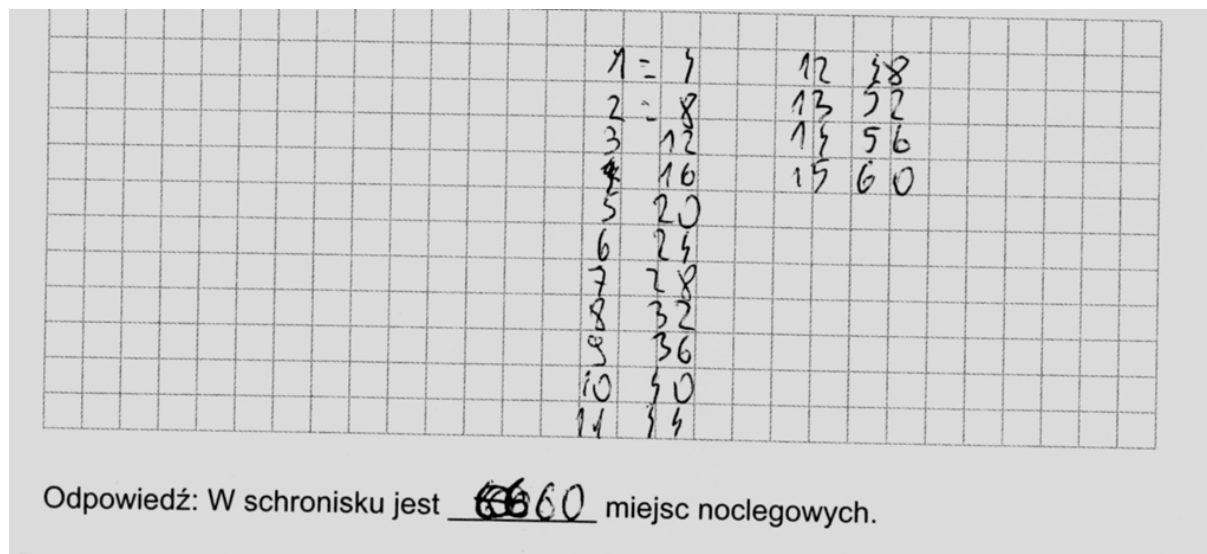 1 = 4
2 = 8
3 12
4 16
5 20
6 24
7 28
8 32
9 36
10 40
11 44
12 48
13 52
14 56
15 60
Odpowiedź: W schronisku jest 60 miejsc noclegowych.